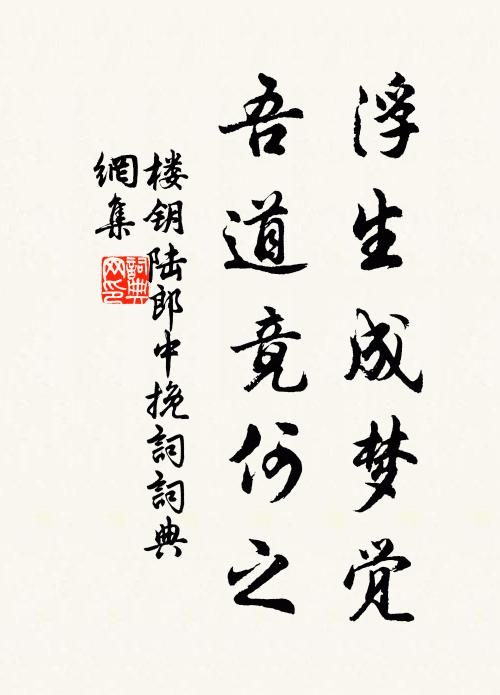 浮生成梦觉
吾道竟何之
楼钥陆郎中挽詞詞典
網集
詞典
网印